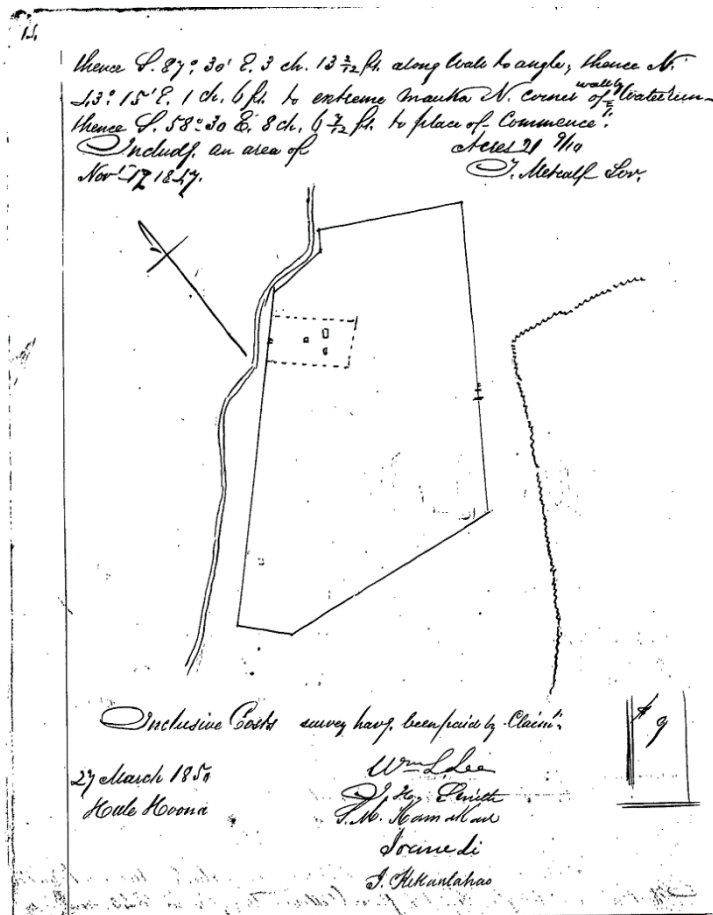 thence S. 87° 30' E. 3 ch. 13 2/12 ft. along Wall to angle; thence N.
43° 15' E. 1 ch. 6 ft. to extreme mauka N. corner of
thence S. 58° 30 E. 8 ch. 6 7/12 ft. to place of Commenct.
Includg. an area of Acres 21 9/10
Novr. 17 1847. T. Metcalf Sor.
Inclusive Costs survey havg. been paid by Claimt.
$9
27 March 1850 Wm L. Lee
Hale Hoona J. H. Smith
S. M. Kamakau
Joane Ii
J. Kekaulahao